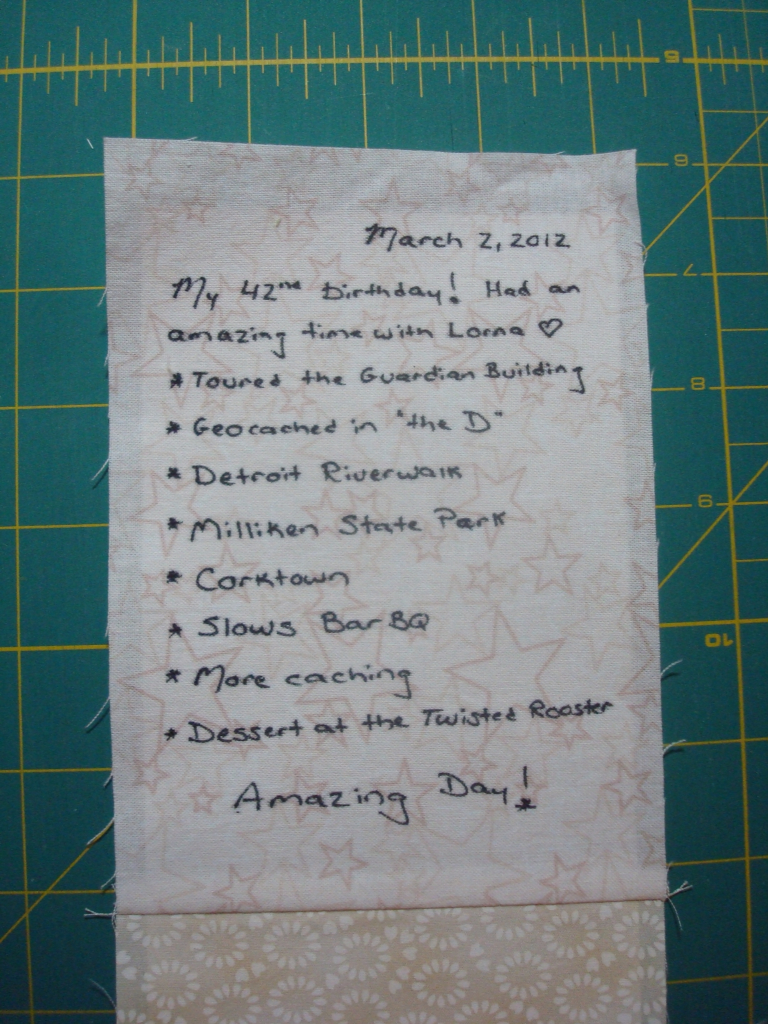 March 2, 2012
My 42nd Birthday! Had an
amazing time with Lorna ♡
* Toured the Guardian Building
* Geocached in "the D"
* Detroit Riverwalk
* Milliken State Park
* Corktown
* Slows BarBQ
* More caching
* Dessert at the Twisted Rooster
Amazing Day!
5
6
7
8
9
10